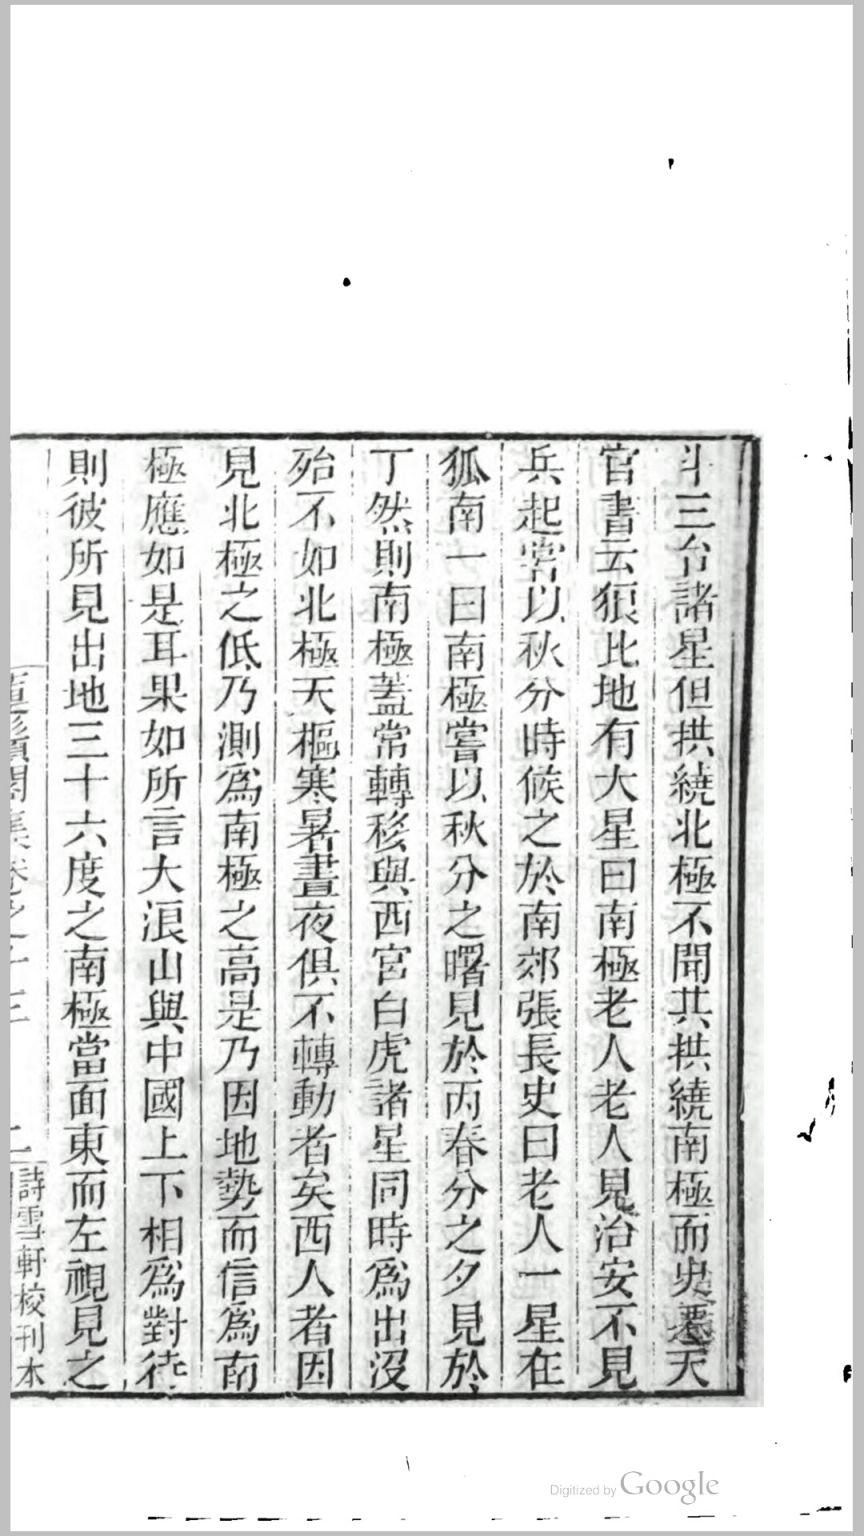 斗三台諸星但拱繞北極不聞共拱繞南極而史遷天
官書云狼比地有大星曰南極老人老人見治安不見
兵起嘗以秋分時候之於南郊張長史曰老人一星在
狐南一曰南極嘗以秋分之曙見於丙春分之夕見於
丁然則南極蓋常轉移與西宮白虎諸星同時爲出沒
殆不如北極天樞寒暑晝夜俱不轉動者矣西人者因
見北極之低乃測爲南極之高是乃因地勢而信爲南
極應如是耳果如所言大浪山與中國上下相爲對待
則彼所見出地三十六度之南極當面東而左視見之
集卷之十三 二 詩雪軒校刊本
Digitized by Google